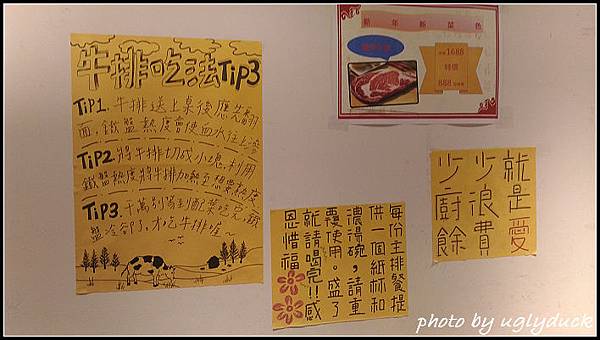 牛排吃法TIP3
TIP1.牛排送上桌後應先翻
面,鐵盤熱度會使血水往上流
TIP2.將牛排切成小塊,利用
鐵盤熱度將牛排加熱至想要熱度
TIP3.千萬別等到配菜吃完,鐵
盤冷卻了,才吃牛排喔~
新年新菜色
1688
特價
888
每份主排餐提
供一個紙杯和
濃湯碗,請重
覆使用。盛了
就請喝完!!感
恩惜福
就是愛
少浪費
少廚餘
photo by uglyduck